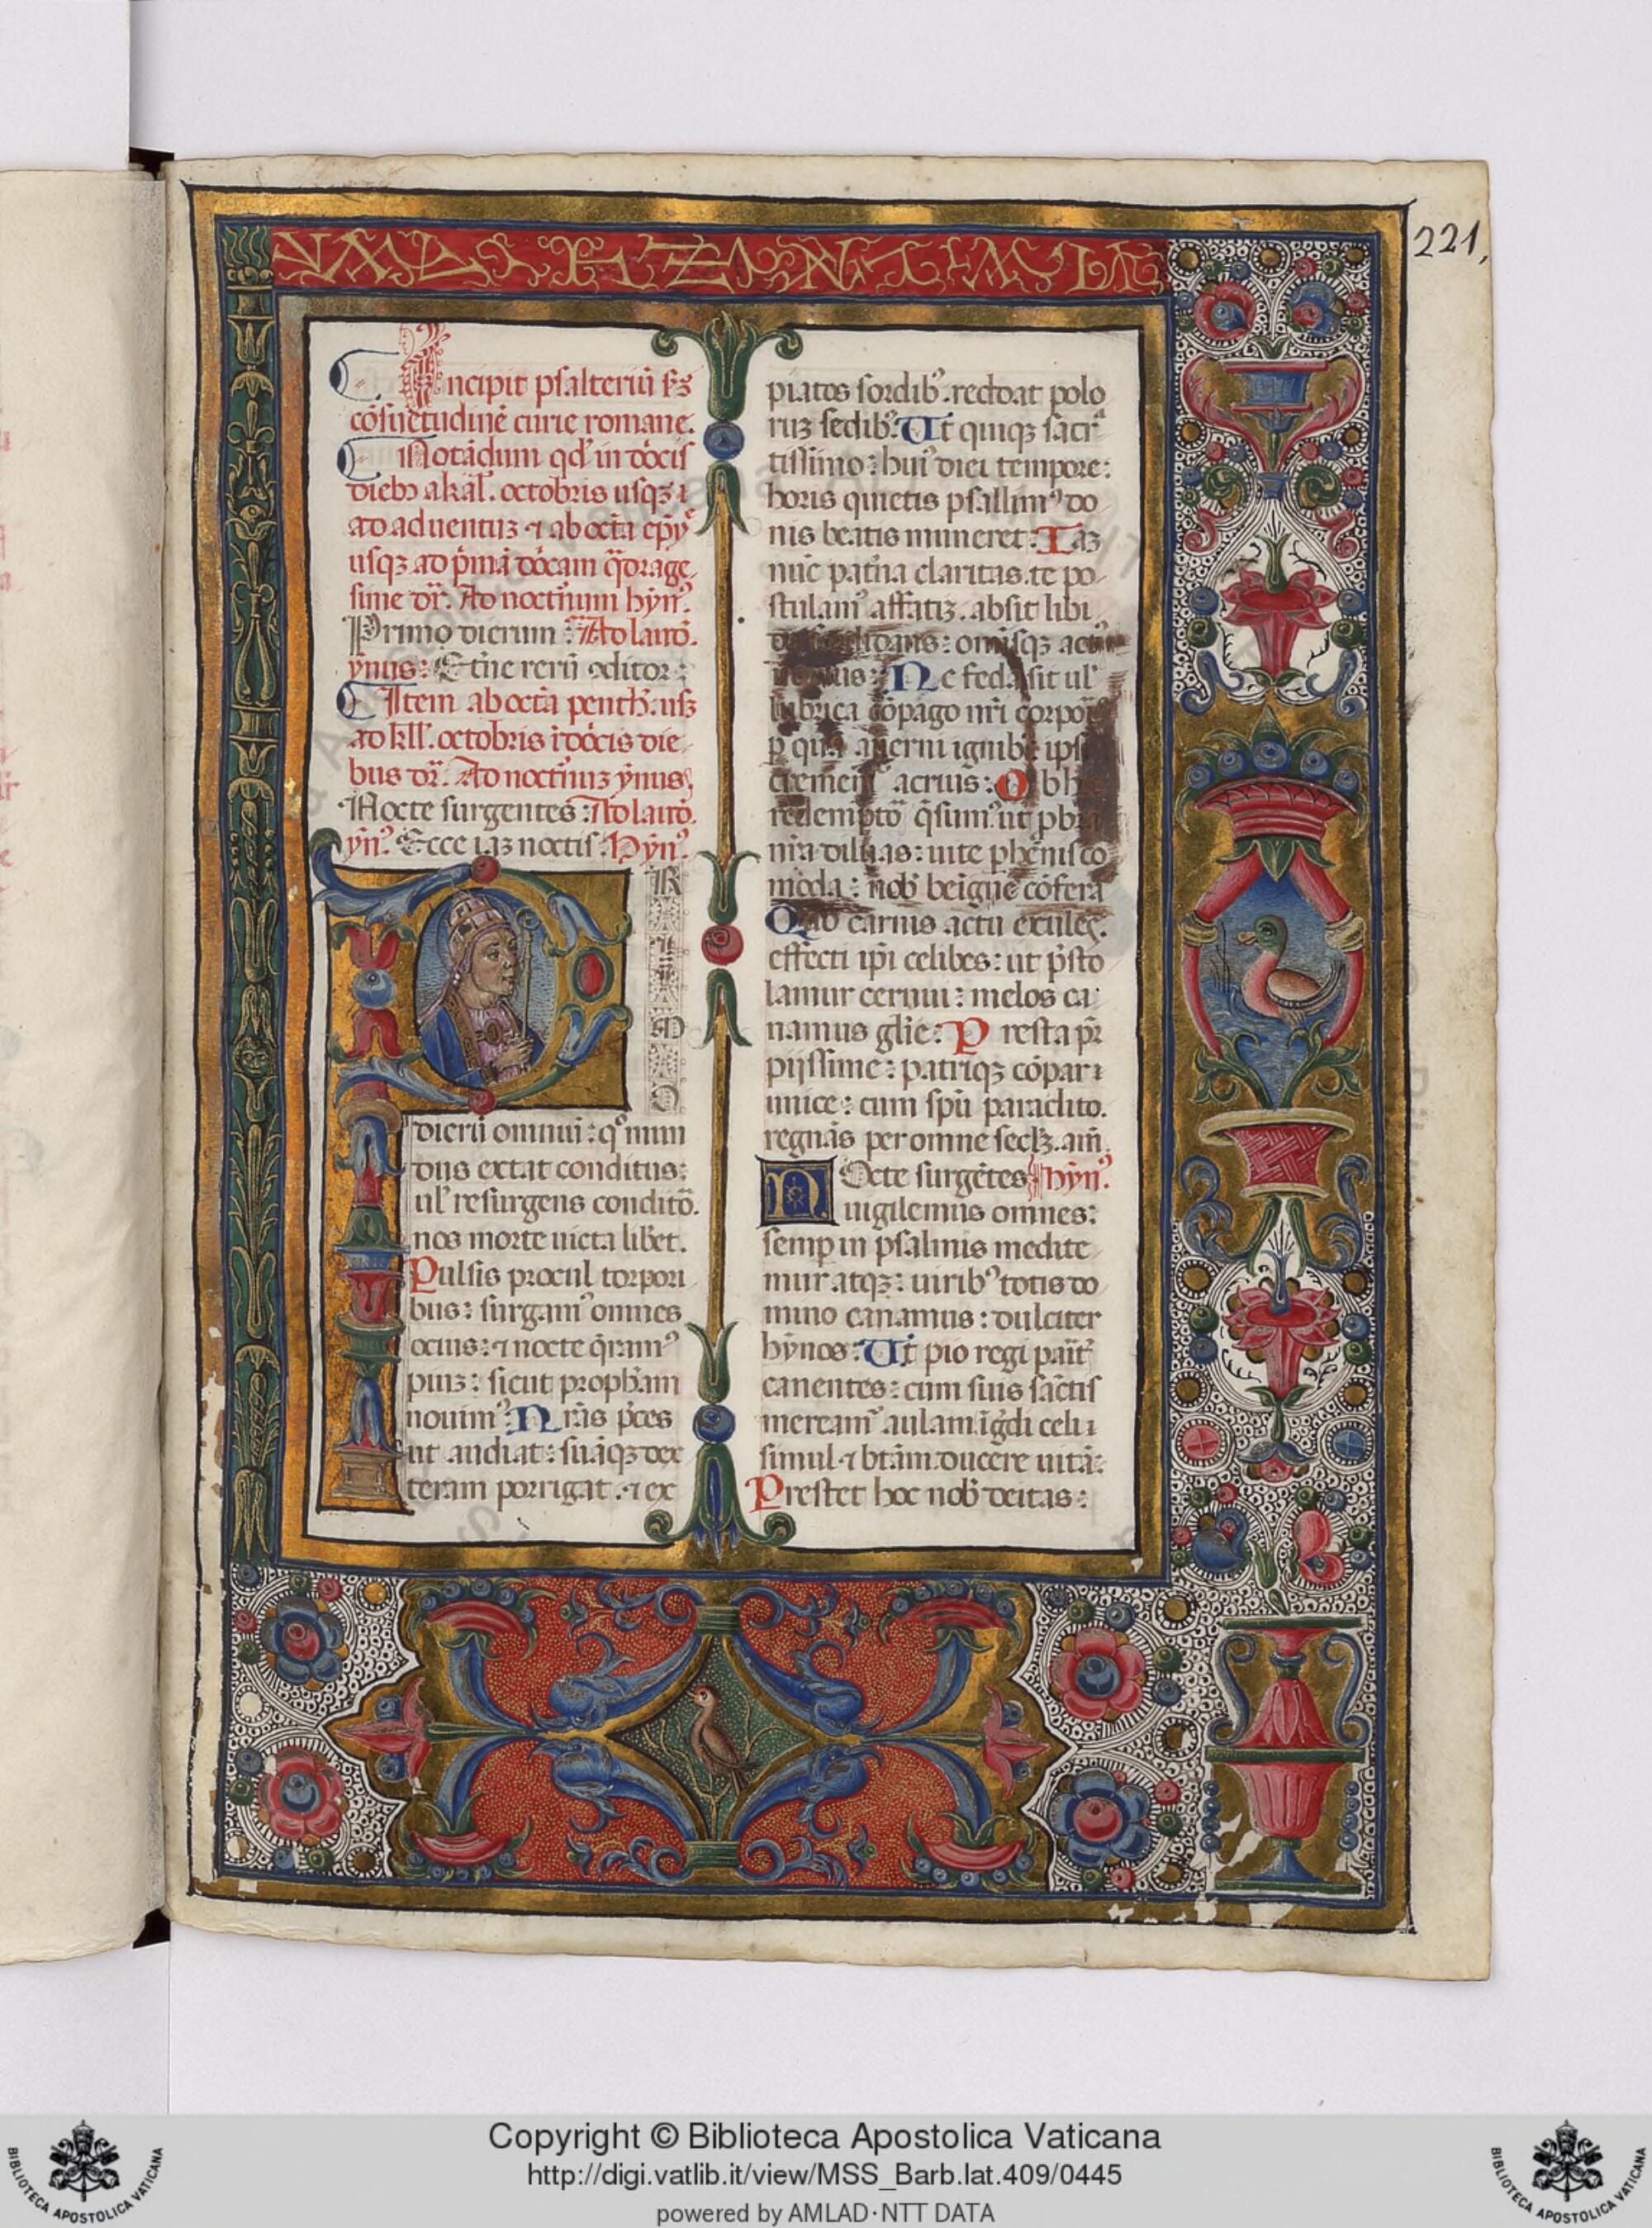 221.
Incipit psalteriū ẜꝫ
cōsuetudinē curie romane.
Notādum qđ in dōcis
dieb⁹ a kal̄. octobris usqꝫ ı
ad aduentuꝫ ⁊ ab octā epȳ
usqꝫ ad p̄mā dōcam q̄drage
sime dr̄. Ad noct̄num hyn̄⁹.
Primo dierum. Ad laud̄.
ẏnus: Et̄ne rerū ↄditor:
Item ab octā penth̄. usꝫ
ad kll̄. octobris ı̄ dōcis die
bus dr̄. Ad noct̄nuꝫ ẏnus
Nocte surgentes: Ad laud̄.
ẏn⁹. Ecce iaꝫ noctis. Hẏn⁹.
PRIMO
dierū omniū: q° mun
dus extat conditus:
ul̄ resurgens conditō̄.
nos morte uicta liƀet.
Pulsis procul torpori
bus: surgam⁹ omnes
ocius: ⁊ nocte q̄ram⁹
piuꝫ: sicut proph̄am
nouim⁹. Nr̄as p̄ces
ut audiat: suāqꝫ dex
teram porrigat. ⁊ ex
piatos sordib⁹. reddat polo
ruꝫ sedib⁹. Ut quiqꝫ sācr̄
tissimo: hui⁹ diei tempore:
horis quietis psallim⁹ do
nis beatis muneret: Iaꝫ
nūc pat̄na claritas. te po
stulam⁹ affatiꝫ. absit libi
sordidans: om̄isqꝫ act⁹
Ne feda sit ul̄
lubrica cōpago nr̄i corpor̄
p quā auerni ignib⁹ ipsi
crememr̄ acrius: Ob h
redemptō̄ q̄sum⁹. ut pbra
nr̄a diluas: uite phēnis co
moda: nob̄ beīgne cōfera
Quo carnis actu exuleſ.
effecti ip̄i celibes: ut p̄sto
lamur cernui: melos ca
namus glīe: Presta pr̄
piissime: patriqꝫ cōpar ı
unice: cum sp̄u paraclito.
regnās per omne seclꝫ. am̄.
Nocte surgētes hẏn⁹.
uigilemus omnes:
semp in psalmis medite
mur atqꝫ: uirib⁹ totis do
mino canamus: dulciter
hẏnos: Ut pio regi parit̄
canentes: cum suis sāctis
meream̄ aulam īgđi celi ı
simul ⁊ btām. ducere uitā:
Prestet hoc nob̄ deitas:
Copyright © Biblioteca Apostolica Vaticana
http://digi.vatlib.it/view/MSS_Barb.lat.409/0445
powered by AMLAD·NTT DATA
BIBLIOTECA APOSTOLICA VATICANA
BIBLIOTECA APOSTOLICA VATICANA